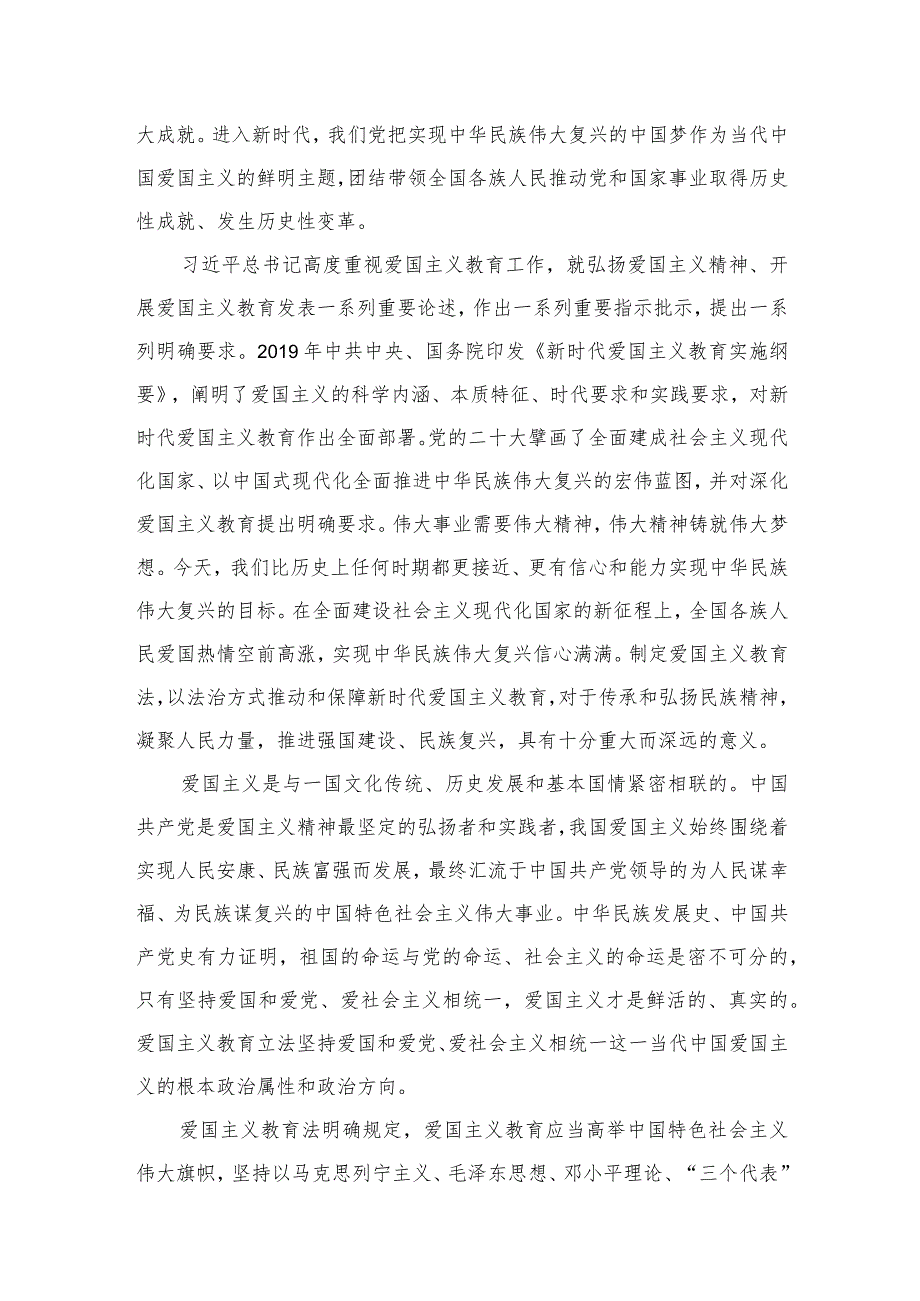 大成就。进入新时代，我们党把实现中华民族伟大复兴的中国梦作为当代中
国爱国主义的鲜明主题，团结带领全国各族人民推动党和国家事业取得历史
性成就、发生历史性变革。
习近平总书记高度重视爱国主义教育工作，就弘扬爱国主义精神、开
展爱国主义教育发表一系列重要论述，作出一系列重要指示批示，提出一系
列明确要求。2019年中共中央、国务院印发《新时代爱国主义教育实施纲
要》，阐明了爱国主义的科学内涵、本质特征、时代要求和实践要求，对新
时代爱国主义教育作出全面部署。党的二十大擘画了全面建成社会主义现代
化国家、以中国式现代化全面推进中华民族伟大复兴的宏伟蓝图，并对深化
爱国主义教育提出明确要求。伟大事业需要伟大精神，伟大精神铸就伟大梦
想。今天，我们比历史上任何时期都更接近、更有信心和能力实现中华民族
伟大复兴的目标。在全面建设社会主义现代化国家的新征程上，全国各族人
民爱国热情空前高涨，实现中华民族伟大复兴信心满满。制定爱国主义教育
法，以法治方式推动和保障新时代爱国主义教育，对于传承和弘扬民族精神，
凝聚人民力量，推进强国建设、民族复兴，具有十分重大而深远的意义。
爱国主义是与一国文化传统、历史发展和基本国情紧密相联的。中国
共产党是爱国主义精神最坚定的弘扬者和实践者，我国爱国主义始终围绕着
实现人民安康、民族富强而发展，最终汇流于中国共产党领导的为人民谋幸
福、为民族谋复兴的中国特色社会主义伟大事业。中华民族发展史、中国共
产党史有力证明，祖国的命运与党的命运、社会主义的命运是密不可分的，
只有坚持爱国和爱党、爱社会主义相统一，爱国主义才是鲜活的、真实的。
爱国主义教育立法坚持爱国和爱党、爱社会主义相统一这一当代中国爱国主
义的根本政治属性和政治方向。
爱国主义教育法明确规定，爱国主义教育应当高举中国特色社会主义
伟大旗帜，坚持以马克思列宁主义、毛泽东思想、邓小平理论、“三个代表”